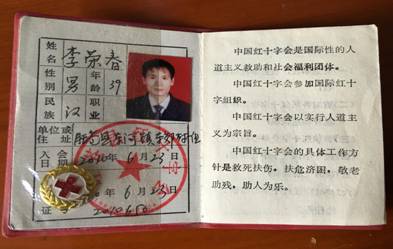 姓名 李荣春
性别 男 年龄 39
民族 汉 职业
单位或住址
入会日期 2010年6月23日
年6月23日
证
中国红十字会是国际性的人
道主义救助和社会福利团体。
中国红十字会参加国际红十
字组织。
中国红十字会以实行人道主
义为宗旨。
中国红十字会的具体工作方
针是救死扶伤,扶危济困,敬老
助残,助人为乐。